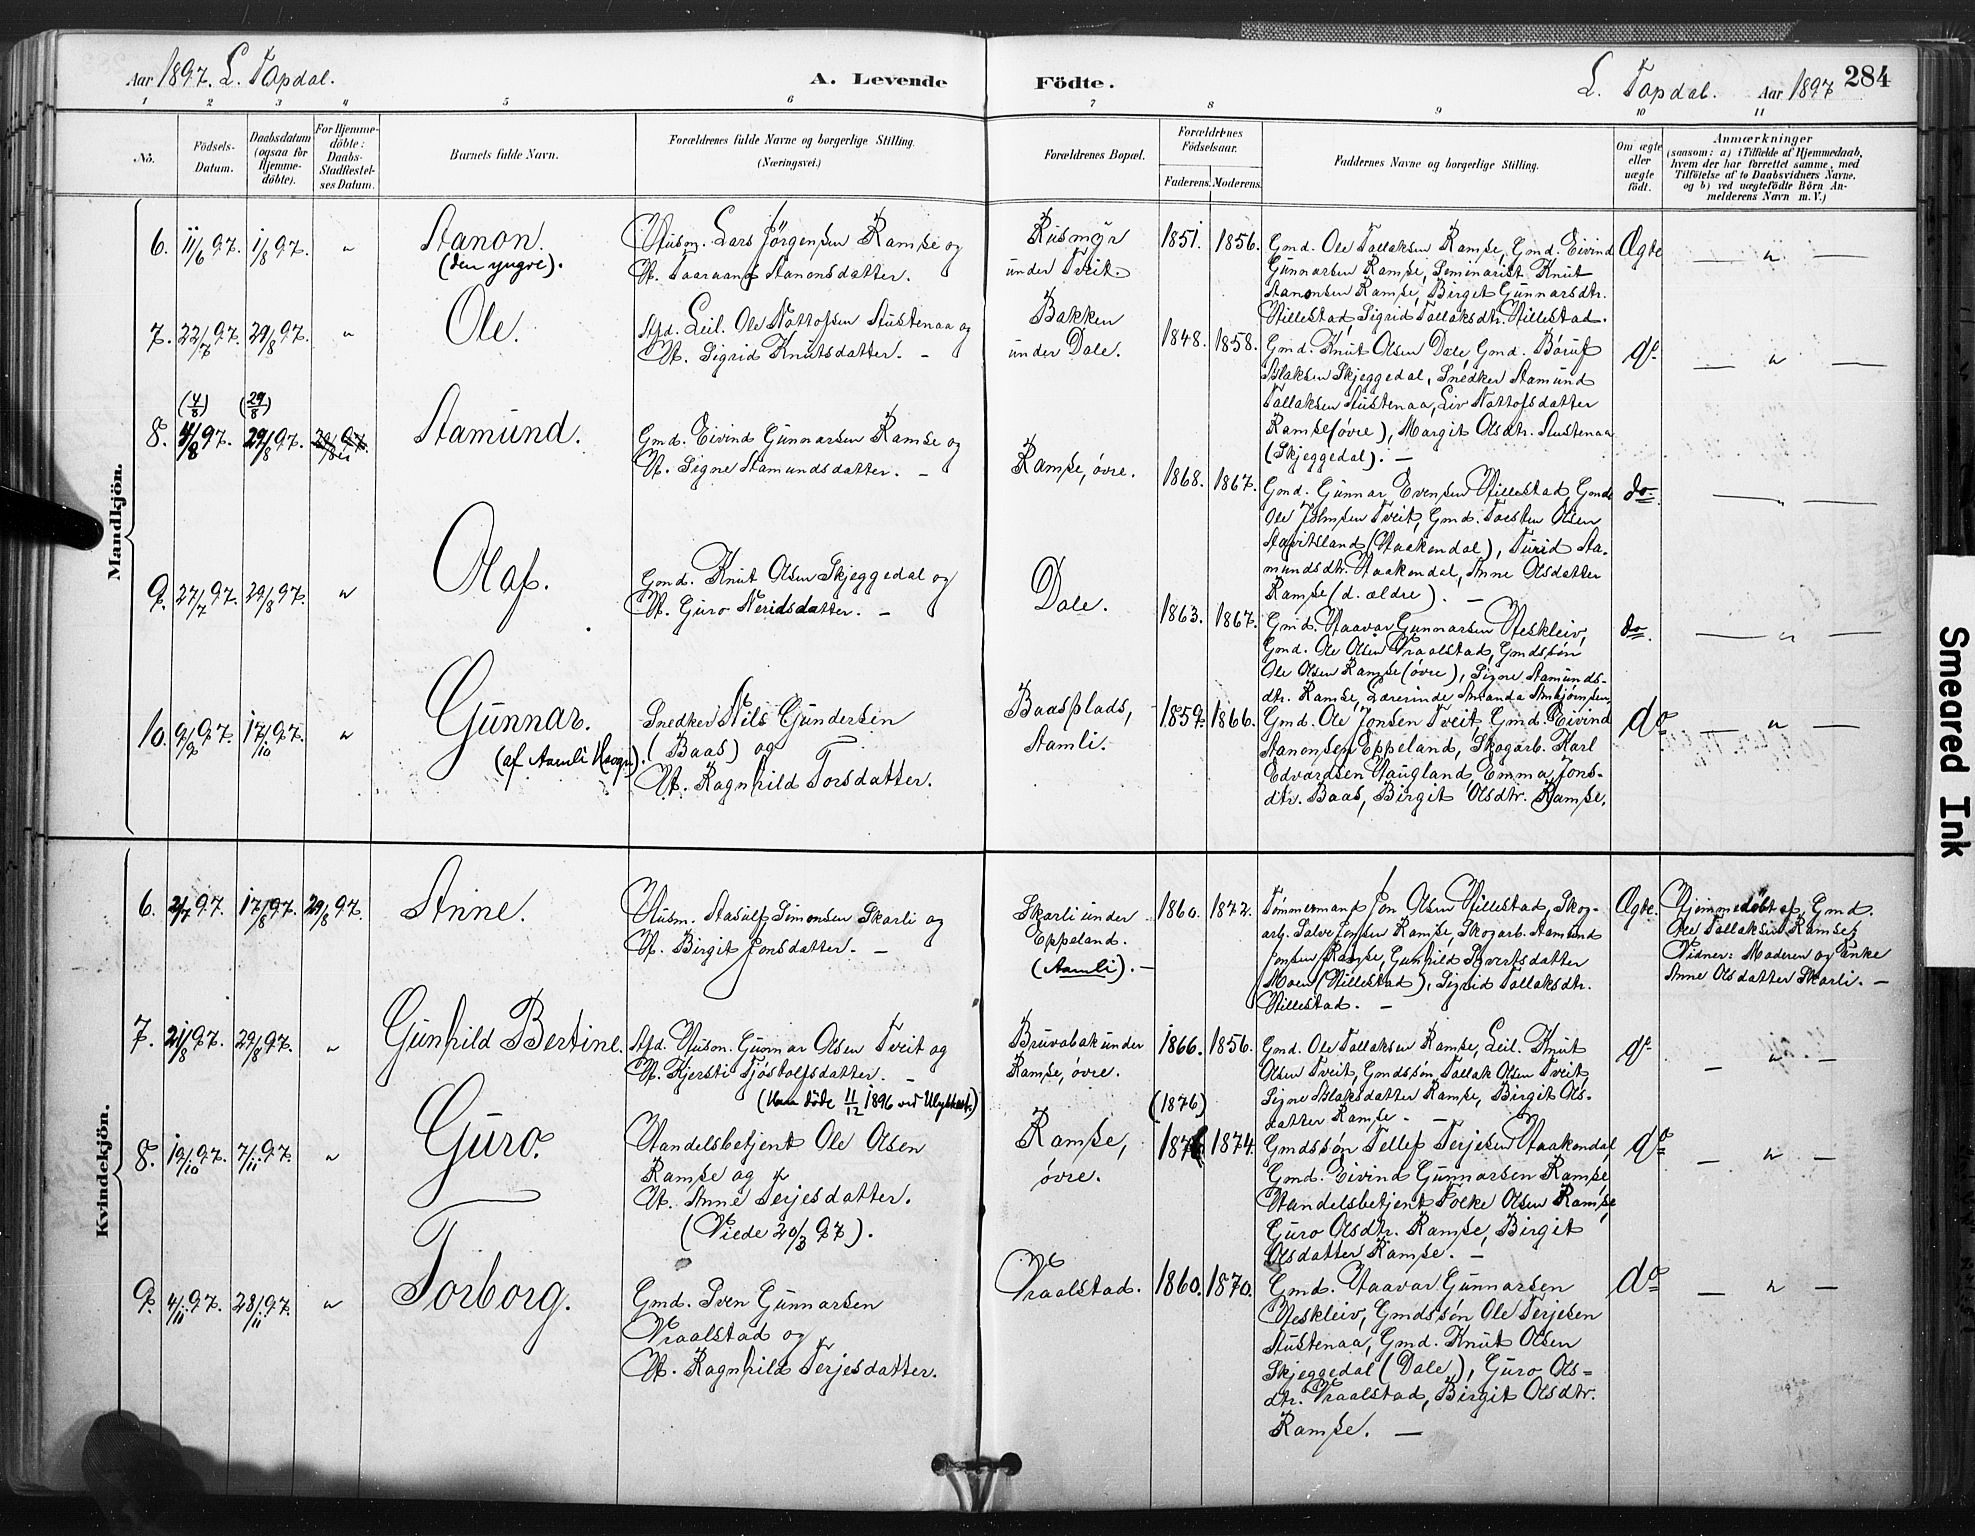 Aar 1897. L. Topdal.
A. Levende Födte.
L. Topdal. Aar 1897 284
1 2 3 4 5 6 7 8 9 10 11
No.
Födsels-
Datum.
Daabsdatum
(ogsaa for
Hjemme-
döbte).
For Hjemme-
döbte:
Daabs-
Stadfæstel-
ses Datum.
Barnets fulde Navn.
Forældrenes fulde Navne og borgerlige Stilling.
(Næringsvei.)
Forældrenes Bopæl.
Forældrenes
Födselsaar.
Faderens. Moderens.
Faddernes Navne og borgerlige Stilling.
Om ægte
eller
uægte
født.
Anmærkninger
(saasom: a) i Tilfælde af Hjemmedaab,
hvem der har forrettet samme, med
Tilføielse af to Daabsvidners Navne,
og b) ved uægtefödte Börn An-
melderens Navn m. V.)
Mandkjön.
6. 11/6 97. 1/8 97. "
Aanon.
(den yngre).
Husm. Lars Jörgensen Ramse og
H. Taaran Aanonsdatter.
Rusmyr
under Tveit.
1851. 1856.
Gmd. Ole Tallaksen Ramse, Gmd. Eivind
Gunnarsen Ramse, Seminarist Knut
Aanonsen Ramse, Birgit Gunnarsdtr.
Hillestad, Sigrid Tallaksdtr. Hillestad.
Ægte
— " —
7. 22/7 97. 29/8 97. "
Ole.
Afd. Leil. Ole Nottofsen Austenaa og
H. Sigrid Knutsdatter. —
Bakken
under Dale.
1848. 1858.
Gmd. Knut Olsen Dale, Gmd. Böruf
Aslaksen Skjeggedal, Snedker Aamund
Tallaksen Austenaa, Liv Nottofsdatter
Ramse (övre), Margit Olsdtr. Austenaa
(Skjeggedal). —
do.
— " —
(4/8) (29/8)
8. 4/8 97. 29/8 97.
Aamund.
Gmd. Eivind Gunnarsen Ramse og
H. Signe Aamundsdatter. —
Ramse, övre.
1868. 1867.
Gmd. Gunnar Evensen Hillestad, Gmd.
Ole Johnsen Tveit, Gmd. Torsten Olsen
Aavitsland (Haakendal), Turid Aa-
mundsdtr. Haakendal, Anne Olsdatter
Ramse (d. ældre). —
do.
— " —
9. 27/7 97. 29/8 97. "
Olaf.
Gmd. Knut Olsen Skjeggedal og
H. Guro Neridsdatter. —
Dale.
1863. 1867.
Gmd. Haavar Gunnarsen Heskleiv,
Gmd. Ole Olsen Vraalstad, Gmdssön
Ole Olsen Ramse (övre), Signe Aamunds-
dtr. Ramse, Lærerinde Amanda Arnbjörnsen
do.
— " —
10. 9/9 97. 17/10 97. "
Gunnar.
(af Aamli Hsogn).
Snedker Nils Gundersen
(Baas) og
H. Ragnhild Torsdatter.
Baasplads,
Aamli.
1859. 1866.
Gmd. Ole Jonsen Tveit, Gmd. Eivind
Aanonsen Eppeland, Skogarb. Karl
Edvardsen Haugland, Emma Jons-
dtr. Baas, Birgit Olsdtr. Ramse.
do
— " —
Kvindekjön.
6. 2/7 97. 17/8 97. 29/8 97.
Anne.
Husm. Aasulf Simonsen Skarli og
H. Birgit Jonsdatter. —
Skarli under
Eppeland.
(Aamli). —
1860. 1872.
Tömmermand Jon Olsen Hillestad, Skog-
arb. Salve Jonsen Ramse, Skogarb. Aamund
Jonsen Ramse, Gunhild Sivertsdatter
Moen (Hillestad), Sigrid Tallaksdtr.
Hillestad. —
Ægte.
Hjemmedöbt af Gmd.
Ole Tallaksen Ramse;
Vidner: Moderen og Enke
Anne Olsdatter Skarli. —
7. 21/8 97. 29/8 97. "
Gunhild Bertine.
Afd. Husm. Gunnar Olsen Tveit og
H. Kjersti Tjöstolfsdatter. —
(Han döde 11/12 1896 ved Ulykkest.)
Bruvabak under
Ramse, övre.
1866. 1856.
Gmd. Ole Tallaksen Ramse, Leil. Knut
Olsen Tveit, Gmdssön Tallak Olsen Tveit,
Signe Aslaksdatter Ramse, Birgit Ols-
datter Ramse. —
do.
— " —
8. 19/10 97. 7/11 97. "
Guro.
Handelsbetjent Ole Olsen
Ramse og
H. Anne Terjesdatter.
(Viede 20/3 97).
Ramse,
övre.
(1876)
1874.
Gmdssön Tellef Terjesen Haakendal,
Gmd. Eivind Gunnarsen Ramse,
Handelsbetjent Folke Olsen Ramse,
Guro Olsdtr. Ramse, Birgit
Olsdatter Ramse. —
do
— " —
9. 4/11 97. 28/11 97. "
Torborg.
Gmd. Sven Gunnarsen
Vraalstad og
H. Ragnhild Terjesdatter.
Vraalstad.
1860. 1870.
Gmd. Haavar Gunnarsen
Heskleiv, Gmdssön Ole Terjesen
Austenaa, Gmd. Knut Olsen
Skjeggedal (Dale), Guro Ols-
dtr. Vraalstad, Birgit Olsdtr.
Ramse. —
do
— " —
Smeared Ink